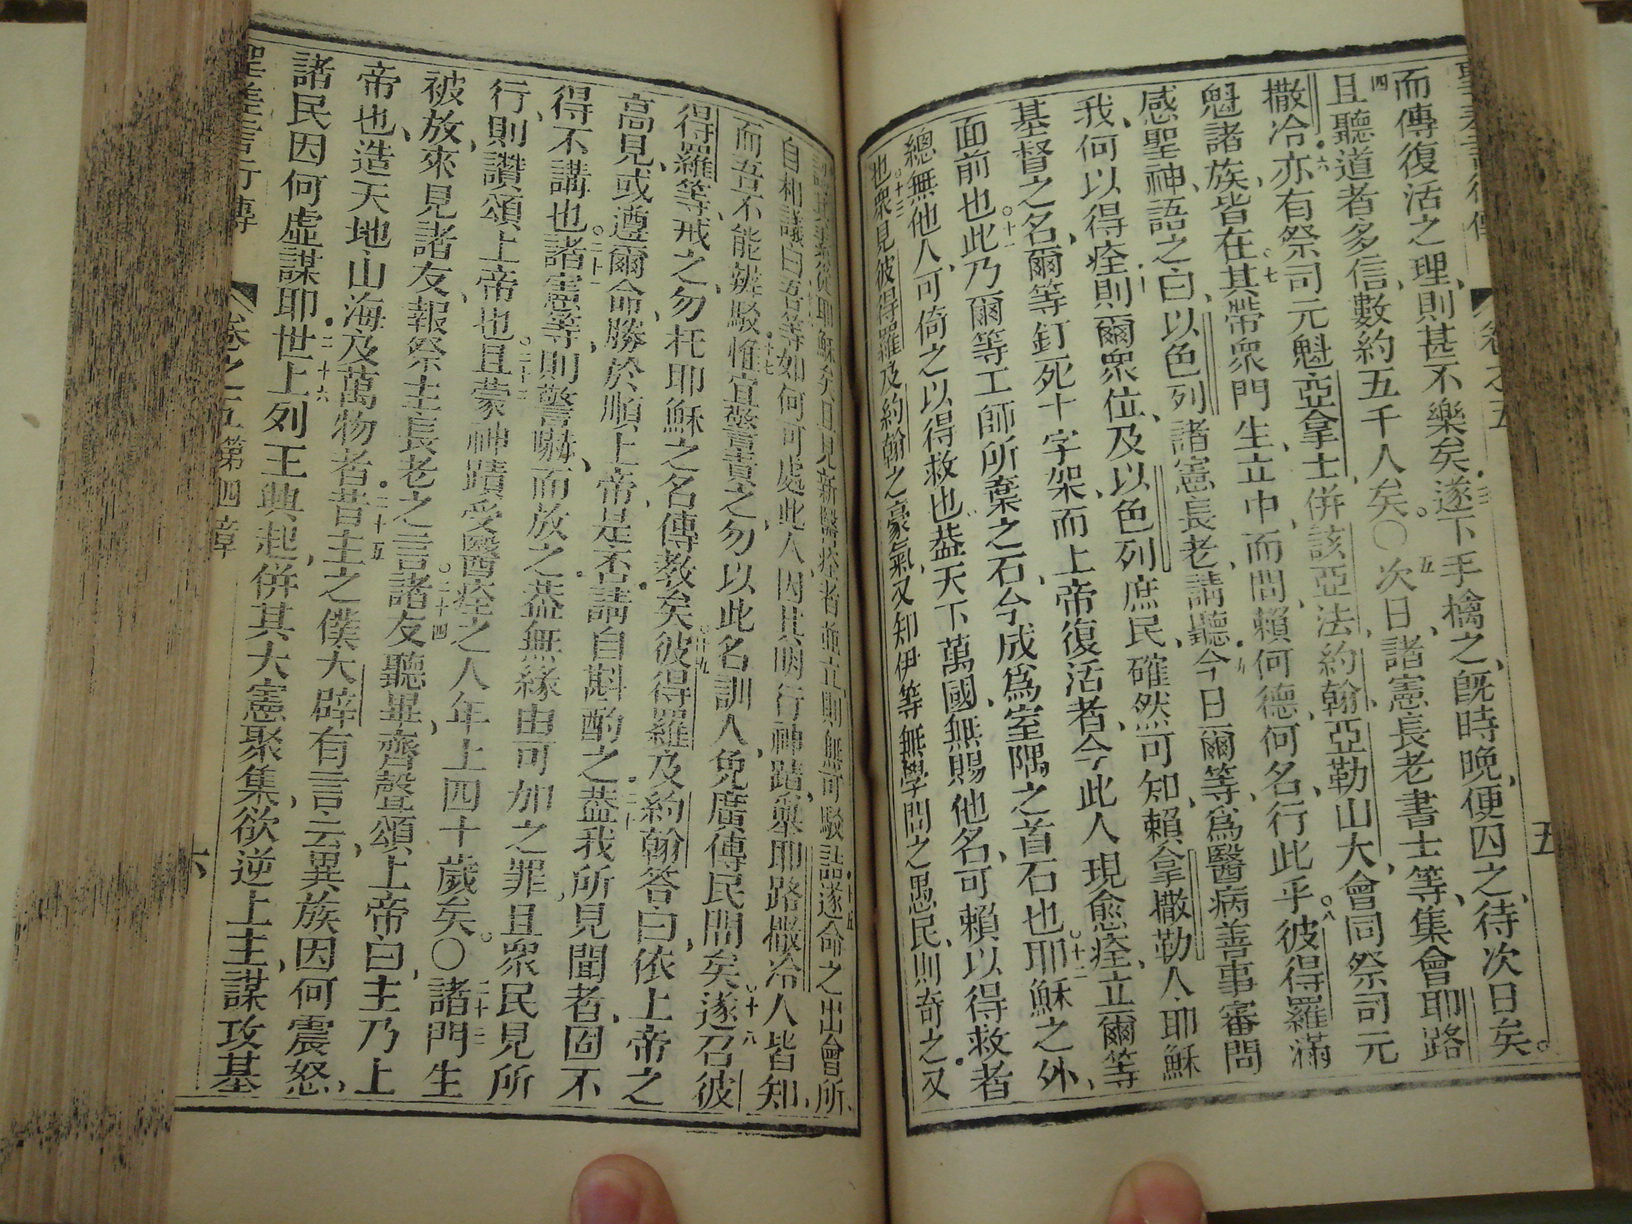 而傳復活之理、則甚不樂矣、遂下手擒之、旣時晚、便囚之、待次日矣。
四且聽道者多信、數約五千人矣。〇五次日、諸憲長老書士等、集會耶路
撒冷、六亦有祭司元魁亞拿士、併該亞法、約翰、亞勒山大、會同祭司元
魁諸族、皆在其常。七衆門生立中、而問、賴何德何名、行此乎。八彼得羅滿
感聖神、語之曰、以色列諸憲長老、請聽、九今日爾等、爲醫病善事審問
我、何以得痊、十則爾衆位、及以色列庶民、確然可知、賴拿撒勒人耶穌
基督之名、爾等釘死十字架、而上帝復活者、今此人現愈痊、立爾等
面前也。十一此乃爾等工師所棄之石、今成爲室隅之首石也。十二耶穌之外、
總無他人、可倚之以得救也、蓋天下萬國、無賜他名、可賴以得救者
也。十三衆見彼得羅及約翰之豪氣、又知伊等無學問之愚民、則奇之、又
從耶穌矣、日見新醫痊者並立、則無可駁詰、十五遂命之出會所、
自相議曰、十六吾等如何可處此人、因其明行神蹟、與耶路撒冷人皆知、
而吾不能辨駁、十七惟宜警責之、勿以此名訓人、免廣傳民間矣。十八遂召彼
得羅等、戒之、勿托耶穌之名傳教矣。十九彼得羅及約翰答曰、依上帝之
高見、或遵爾命、勝於順上帝、是否、請自斟酌之、二十蓋我所見聞者、固不
得不講也。二十一諸憲等、則警嚇、而放之、蓋無緣由可加之罪、且衆民見所
行、則讚頌上帝也。二十二且蒙神蹟受醫痊之人、年上四十歲矣。〇二十三諸門生
被放、來見諸友、報祭主長老之言。二十四諸友聽畢、齊聲頌上帝曰、主乃上
帝也、造天地山海及萬物者、二十五昔主之僕大辟有言云、異族因何震怒、
諸民因何虛謀耶。二十六世上列王興起、併其大憲聚集、欲逆上主、謀攻基
卷之五
五
卷之五 第四章
六